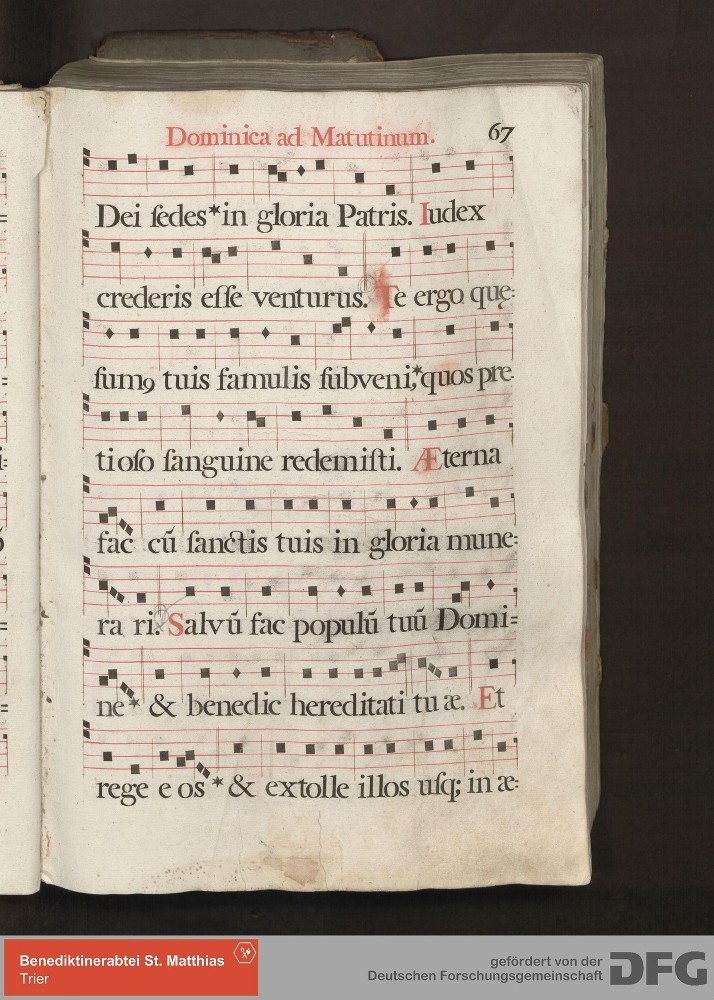 Dominica ad Matutinum. 67
Dei ſedes*in gloria Patris. Iudex
crederis eſſe venturus. Te ergo quę:
ſumꝯ tuis famulis ſubveni,*quos pre-
tioſo ſanguine redemiſti. Æterna
fac cū ſanctis tuis in gloria mune:
ra ri. Salvū fac populū tuū Domi=
ne * & benedic hereditati tu æ. Et
rege e os * & extolle illos uſq; in æ:
Benediktinerabtei St. Matthias
Trier
gefördert von der
Deutschen Forschungsgemeinschaft
DFG